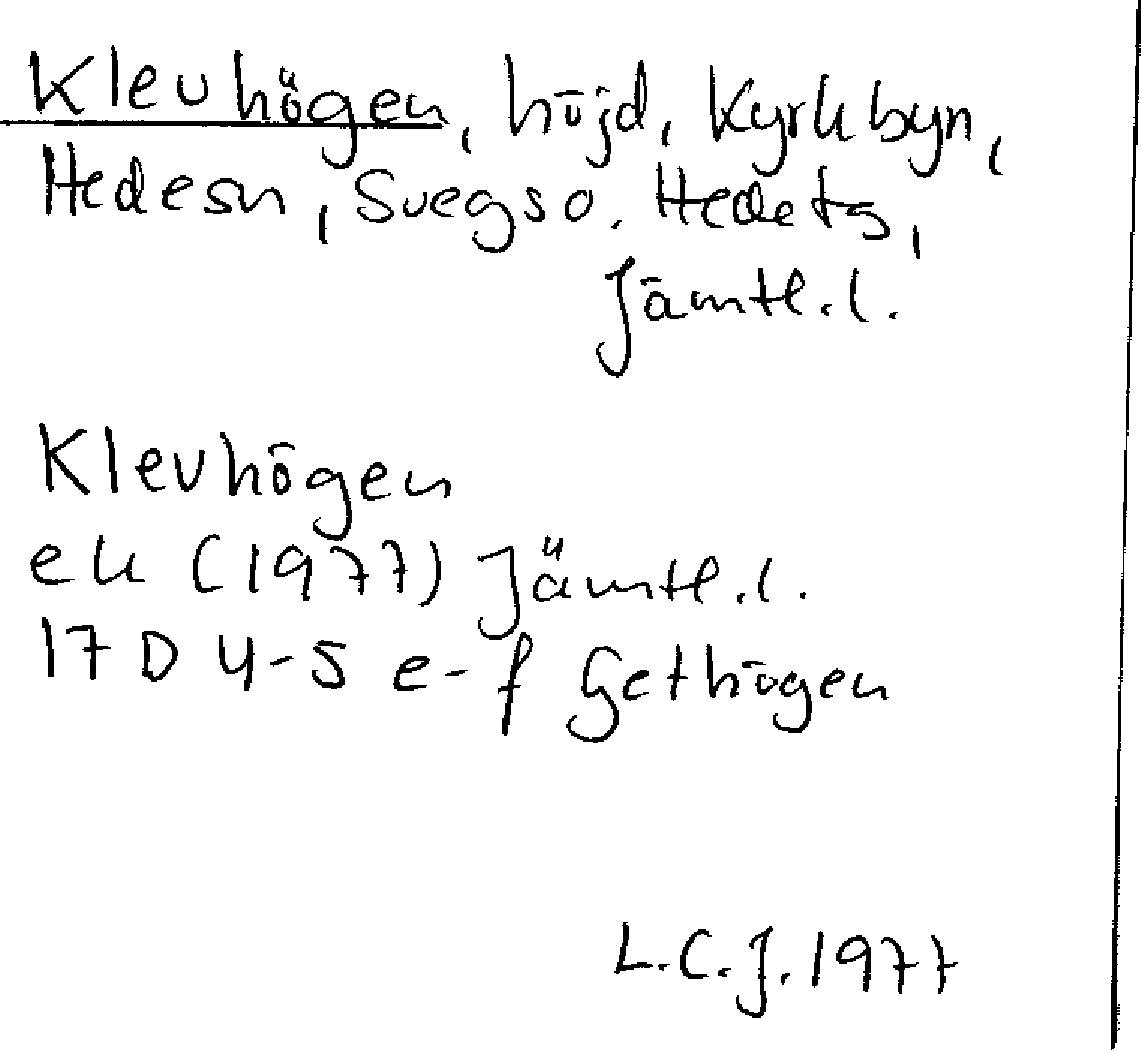 Klevhögen, höjd, Kyrkbyn,
Hedesn, Svegs o. Hedets,
Jämtl. l.
Klevhögen
ek (1977) Jämtl. l.
17 D 4-5 e-f Gethögen
L.C.J. 1977